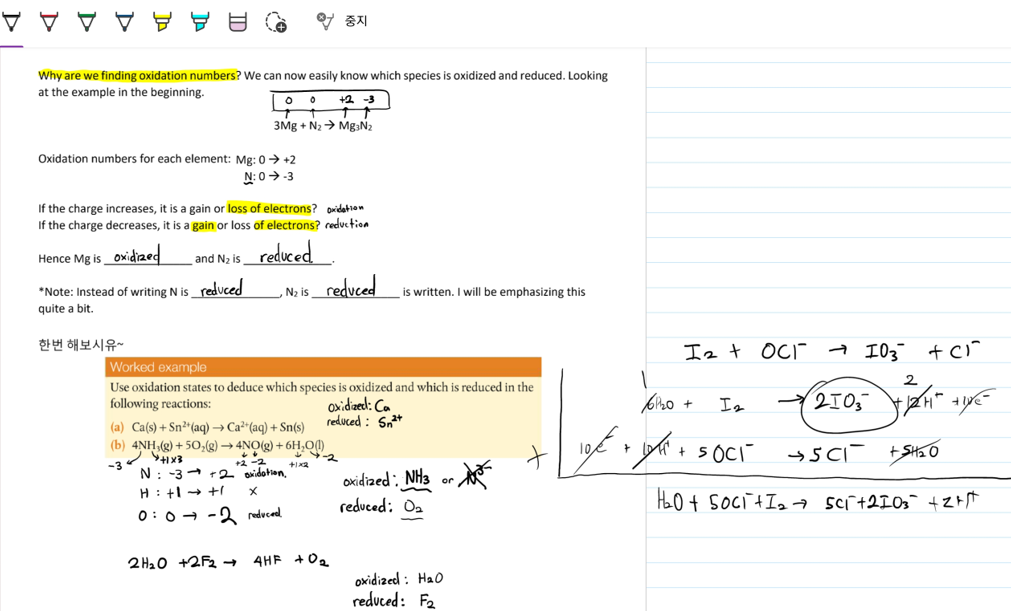 중지
Why are we finding oxidation numbers? We can now easily know which species is oxidized and reduced. Looking
at the example in the beginning.
0 0 +2 -3
3Mg + N₂ → Mg₃N₂
Oxidation numbers for each element: Mg: 0 → +2
N: 0 → -3
If the charge increases, it is a gain or loss of electrons? oxidation
If the charge decreases, it is a gain or loss of electrons? reduction
Hence Mg is oxidized and N₂ is reduced.
*Note: Instead of writing N is reduced, N₂ is reduced is written. I will be emphasizing this
quite a bit.
한번 해보시유~
Worked example
Use oxidation states to deduce which species is oxidized and which is reduced in the
following reactions:
oxidized: Ca
reduced: Sn²⁺
(a) Ca(s) + Sn²⁺(aq) → Ca²⁺(aq) + Sn(s)
(b) 4NH₃(g) + 5O₂(g) → 4NO(g) + 6H₂O(l)
-3 +1×3 +2 -2 +1×2 -2
N: -3 → +2 oxidation.
H: +1 → +1 x
O: 0 → -2 reduced
oxidized: NH₃ or N³⁻
reduced: O₂
2H₂O + 2F₂ → 4HF + O₂
oxidized: H₂O
reduced: F₂
I₂ + OCl⁻ → IO₃⁻ + Cl⁻
1 2
6H₂O + I₂ → 2IO₃⁻ + 12H⁺ + 10e⁻
+ 10e⁻ + 10H⁺ + 5OCl⁻ → 5Cl⁻ + 5H₂O
H₂O + 5OCl⁻ + I₂ → 5Cl⁻ + 2IO₃⁻ + 2H⁺